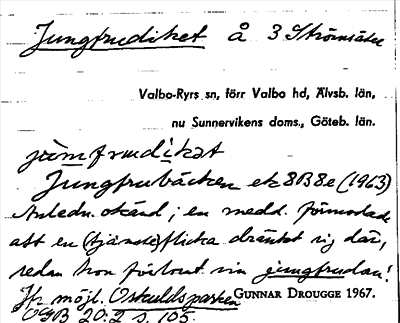 Jungfrudiket å 3 Strömsäter
Valbo-Ryrs sn, förr Valbo hd, Älvsb. län,
nu Sunnervikens doms., Göteb. län.
jómfrudikat
Jungfrubäcken ek 8B8e (1963)
Anledn. okänd; en medd. förmodade
att en (tjänste)flicka dränkt sig där,
sedan hon förlorat sin jungfrudom!
Jfr möjl. Oskuldsparken GUNNAR DROUGGE 1967.
OGB 20:2 s. 105.